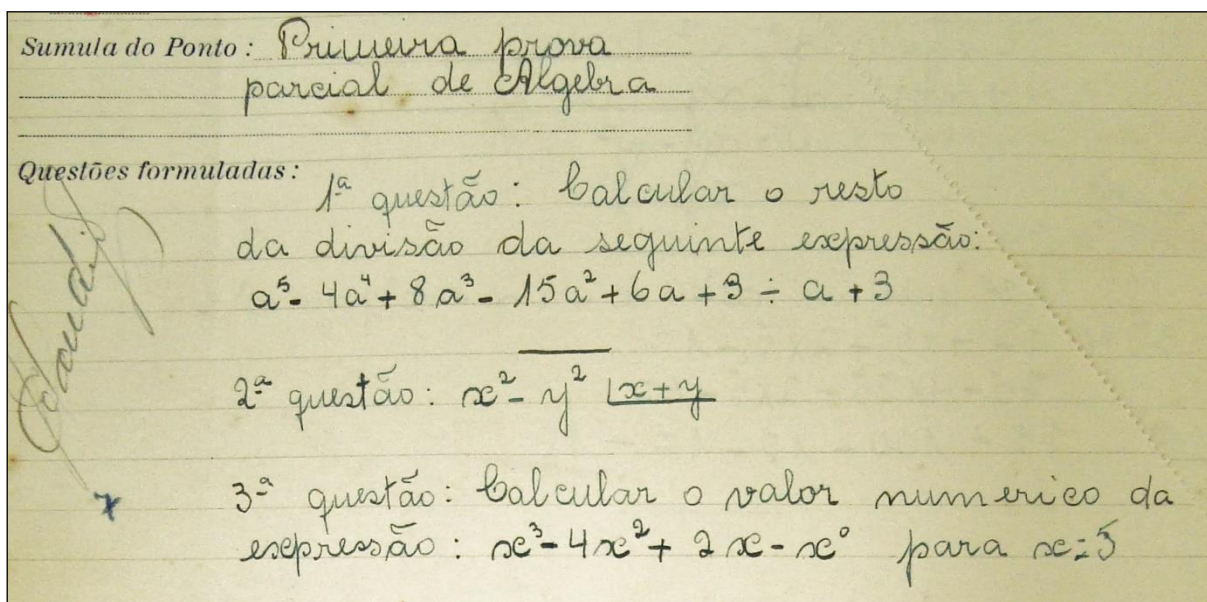 Sumula do Ponto: Primeira prova
parcial de Algebra
Questões formuladas:
1ª questão: Calcular o resto
da divisão da seguinte expressão:
a⁵- 4a⁴+ 8a³- 15a²+6a+9 ÷ a+3
2ª questão: x²- y² |x+y
3ª questão: Calcular o valor numerico da
expressão: x³-4x²+ 2x-x⁰ para x=5